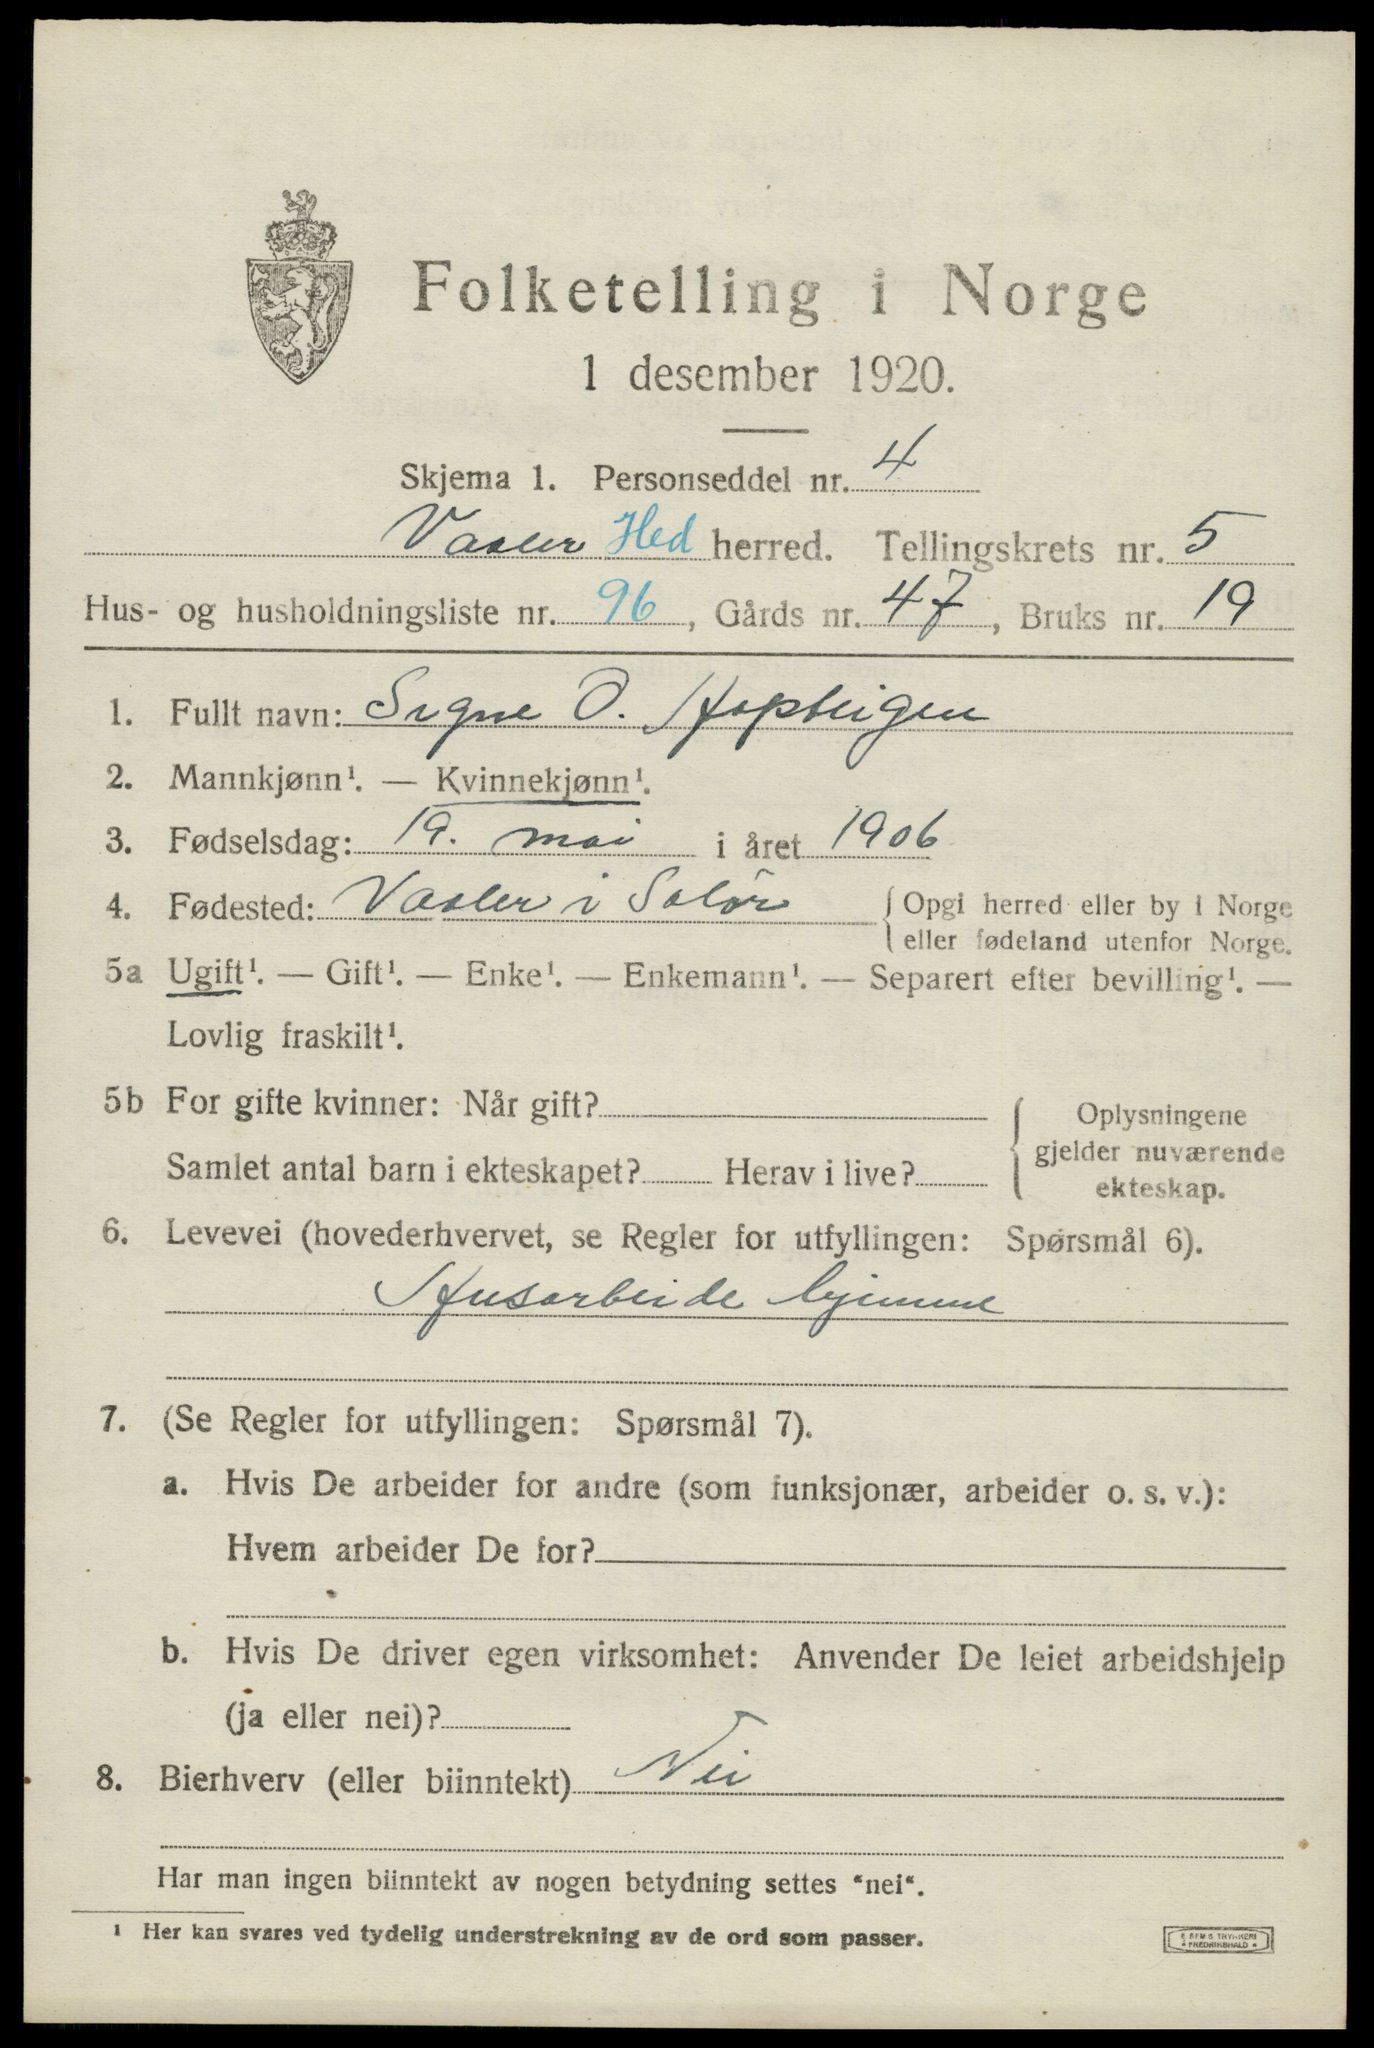 Folketelling i Norge
1 desember 1920.
Skjema 1. Personseddel nr. 4
Vaaler Hed herred. Tellingskrets nr. 5
Hus- og husholdningsliste nr. 96, Gårds nr. 47, Bruks nr. 19
1. Fullt navn: Signe O. Hapbeigen
2. Mannkjønn¹. — Kvinnekjønn¹.
3. Fødselsdag: 19. mai i året 1906
4. Fødested: Vaaler i Solør { Opgi herred eller by i Norge
eller fødeland utenfor Norge.
5a Ugift¹. — Gift¹. — Enke¹. — Enkemann¹. — Separert efter bevilling¹. —
Lovlig fraskilt¹.
5b For gifte kvinner: Når gift?
Samlet antal barn i ekteskapet? Herav i live?
Oplysningene
gjelder nuværende
ekteskap.
6. Levevei (hovederhvervet, se Regler for utfyllingen: Spørsmål 6).
Husarbeide hjemme
7. (Se Regler for utfyllingen: Spørsmål 7).
a. Hvis De arbeider for andre (som funksjonær, arbeider o. s. v.):
Hvem arbeider De for?
b. Hvis De driver egen virksomhet: Anvender De leiet arbeidshjelp
(ja eller nei)?
8. Bierhverv (eller biinntekt) Nei
Har man ingen biinntekt av nogen betydning settes "nei".
¹ Her kan svares ved tydelig understrekning av de ord som passer.
TRYKKERI
FREDRIKSHALD